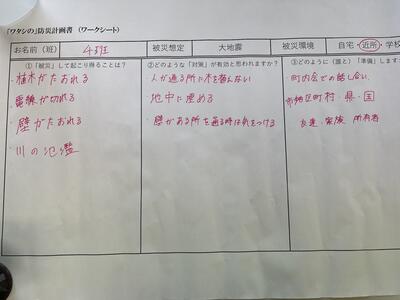 「ワタシの」防災計画書 （ワークシート）
お名前（班） 4班 被災想定 大地震 被災環境 自宅・近所・学校
①「被災」して起こり得ることは？ ②どのような「対策」が有効と思われますか？ ③どのように（誰と）「準備」します
・植木がたおれる 人が通る所に木を植えない ・町内会での話し合い
・電線が切れる 地中に埋める 市町区町村・県・国
・壁がたおれる ・壁がある所を通る時は気をつける 友達・家族 所有者
・川の氾濫